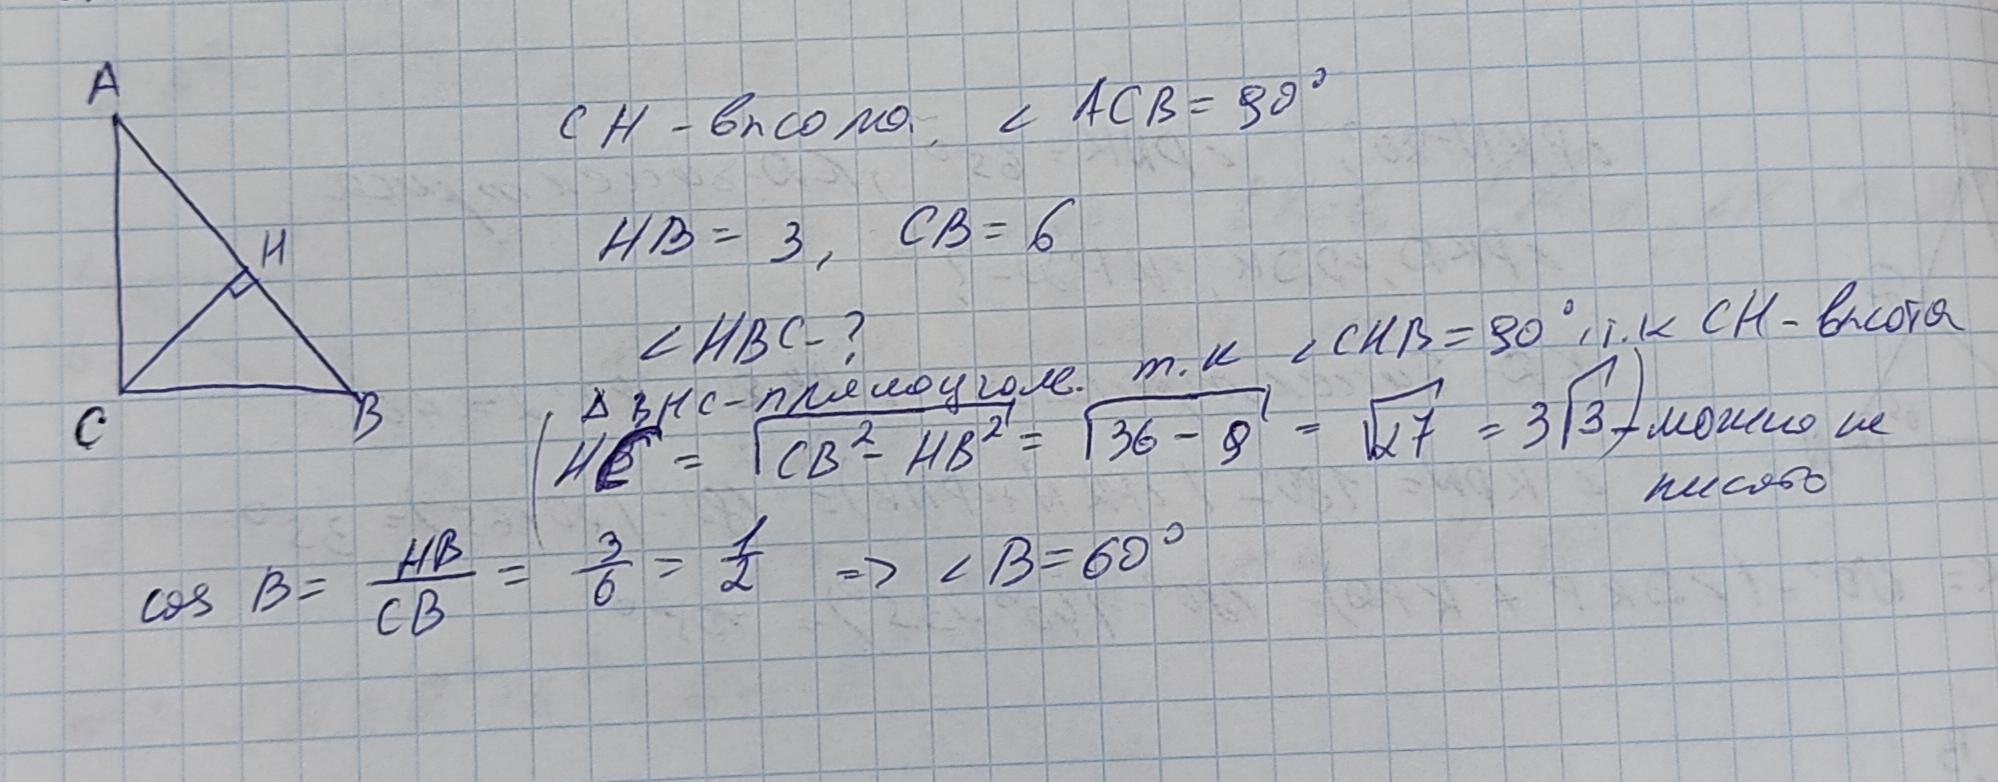 A
H
C
B
CH - высота, ∠ ACB = 90°
HB = 3, CB = 6
∠HBC - ?
Δ BHC - прямоугол. т.к ∠CHB = 90°, т.к CH - высота
(HC = √(CB² - HB²) = √(36 - 9) = √27 = 3√3) - можно не
писать
cos B = HB/CB = 3/6 = 1/2 => ∠B = 60°